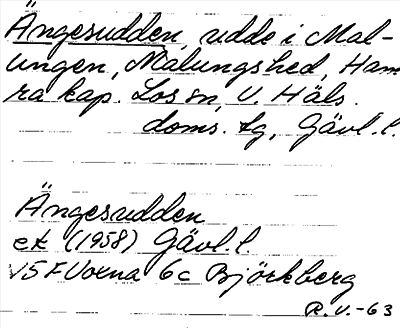 Ängesudden, udde i Mal-
ungen, Malungshed, Ham
ra kap. Los sn, V. Häls.
doms. tg, Gävl. l.
Ängesudden
ek (1958) Gävl. l.
15F Voxna 6c Björkberg
R.V.-63